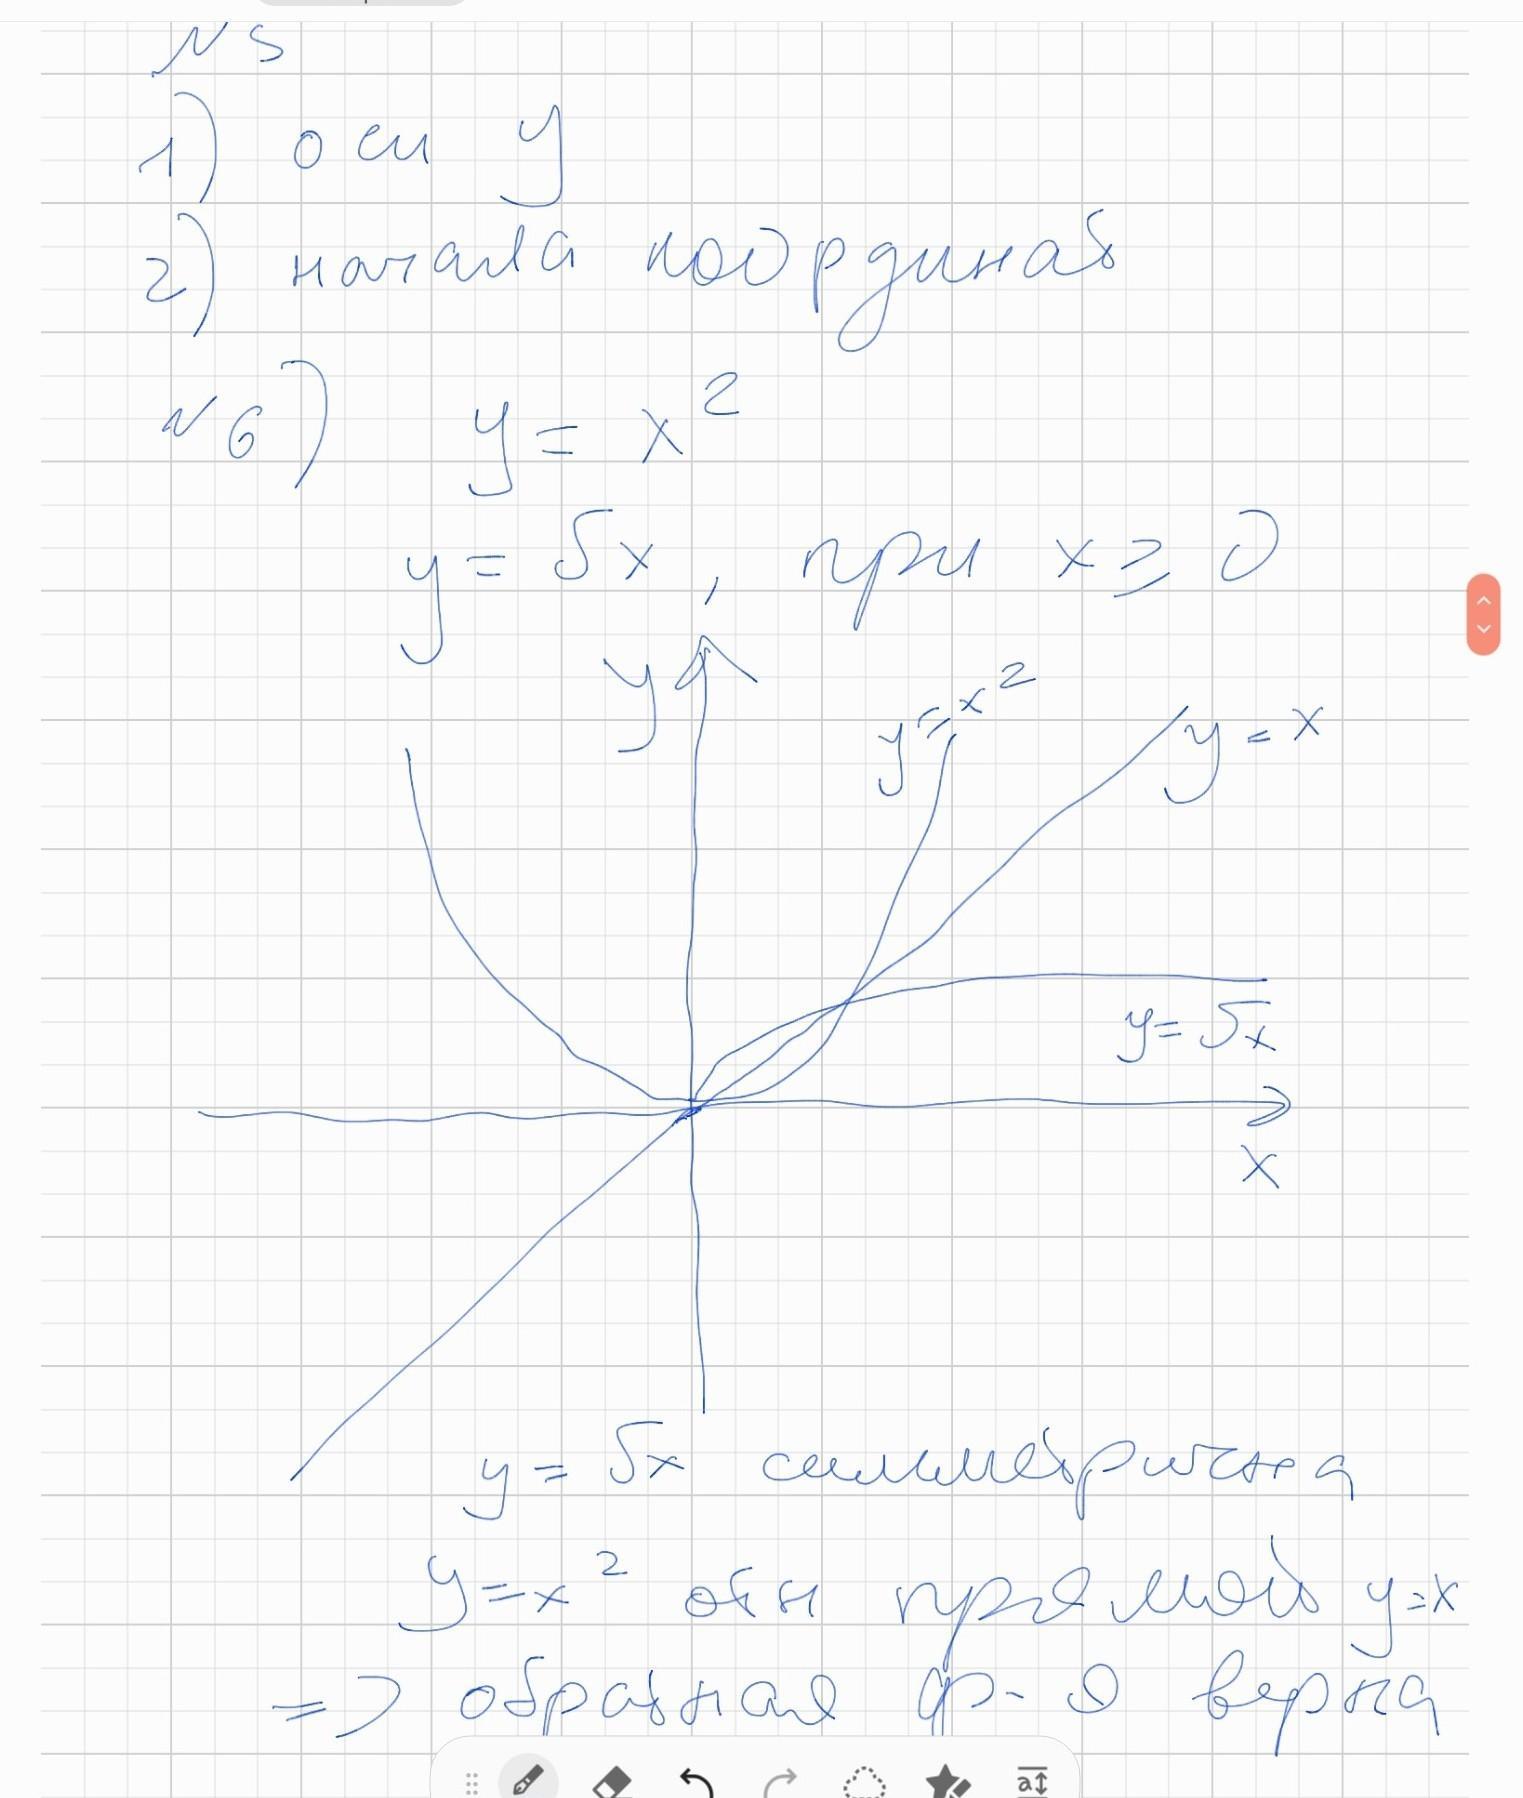 N 5
1) оси y
2) начала координат
N 6) y = x²
y = √x, при x ≥ 0
y
y = x²
y = x
y = √x
x
y = √x симметрична
y = x² отн прямой y = x
=> обратная ф-я верна